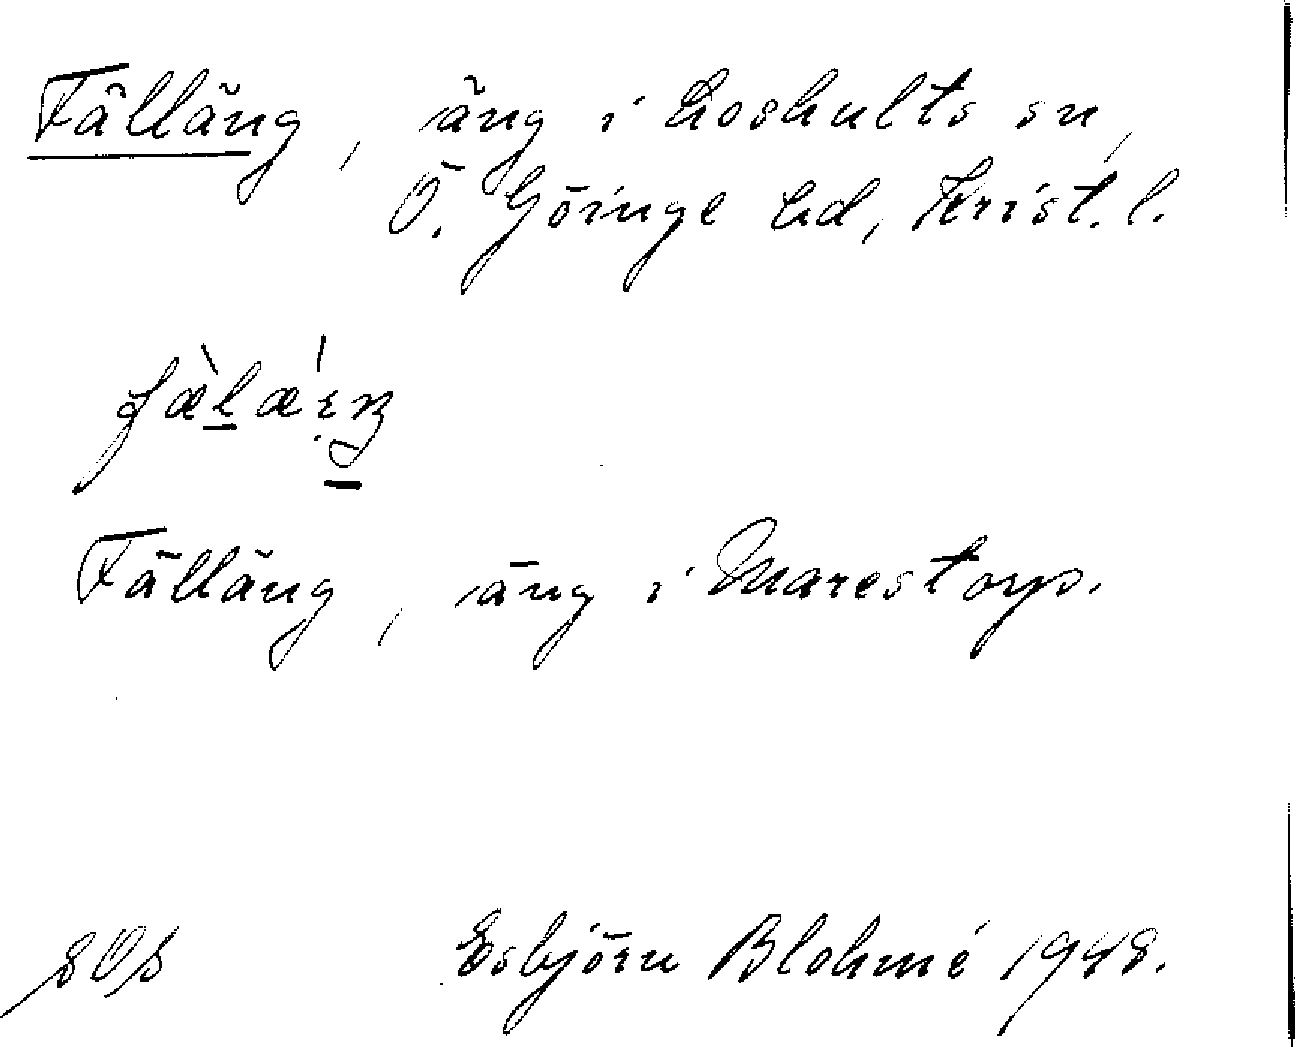 Fälläng, äng i Loshults sn,
Ö. Göinge hd, Krist. l.
Fälläng, äng i Marestorp.
Esbjörn Blohmé 1948.